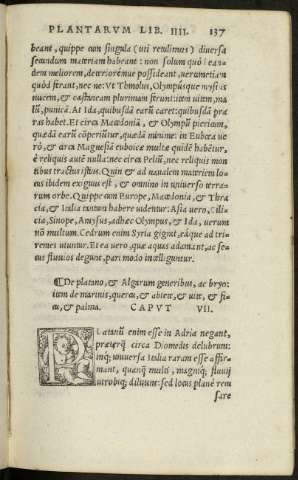 PLANTARVM LIB. IIII. 137
beant, quippe cum singula (uti retulimus) diuersa
secundum materiam habeant: non solum quòd ean-
dem meliorem, deteriorémue possideant, uerumetiam
quòd ferant, nec ne: Vt Thmolus, Olympusque mysius
nucem, & castaneam plurimam ferunt: item uitem, ma
lũ, punicã. At Ida, quibusdã earũ caret: quibusdã præ
ras habet. Et circa Macedoniã, & Olympũ piericum,
quædã earũ cõperiũtur, quædã minime: in Eubœa ue
rò, & circa Magnesiã euboicæ multæ quidē habētur,
è reliquis autē nulla: nec circa Peliũ, nec reliquis mon
tibus tractus istius. Quin & ad naualem materiem lo-
cus ibidem exiguus est, & omnino in uniuerso terra-
rum orbe. Quippe cum Europæ, Macedonia, & Thra
cia, & Italia tantum habere uidentur: Asiæ uero, Cili-
cia, Sinope, Amysus, adhæc Olympus, & Ida, uerum
nõ multum. Cedrum enim Syria gignit, eáque ad tri-
remes utuntur. Et ea uero, quæ aquas adamant, ac se-
cus fluuios degunt, pari modo intelliguntur.
¶De platano, & Algarum generibus, ac bryo:
item de marinis, quercu, & abiete, & uite, & fi-
cu, & palma. CAPVT VII.
PLatanũ enim esse in Adria negant,
præterq̃ circa Diomedis delubrum:
inq; uniuersa Italia raram esse affir-
mant, quanq̃ multi, magniq; fluuij
utrobiq; diluunt: sed locus planè ren
fare